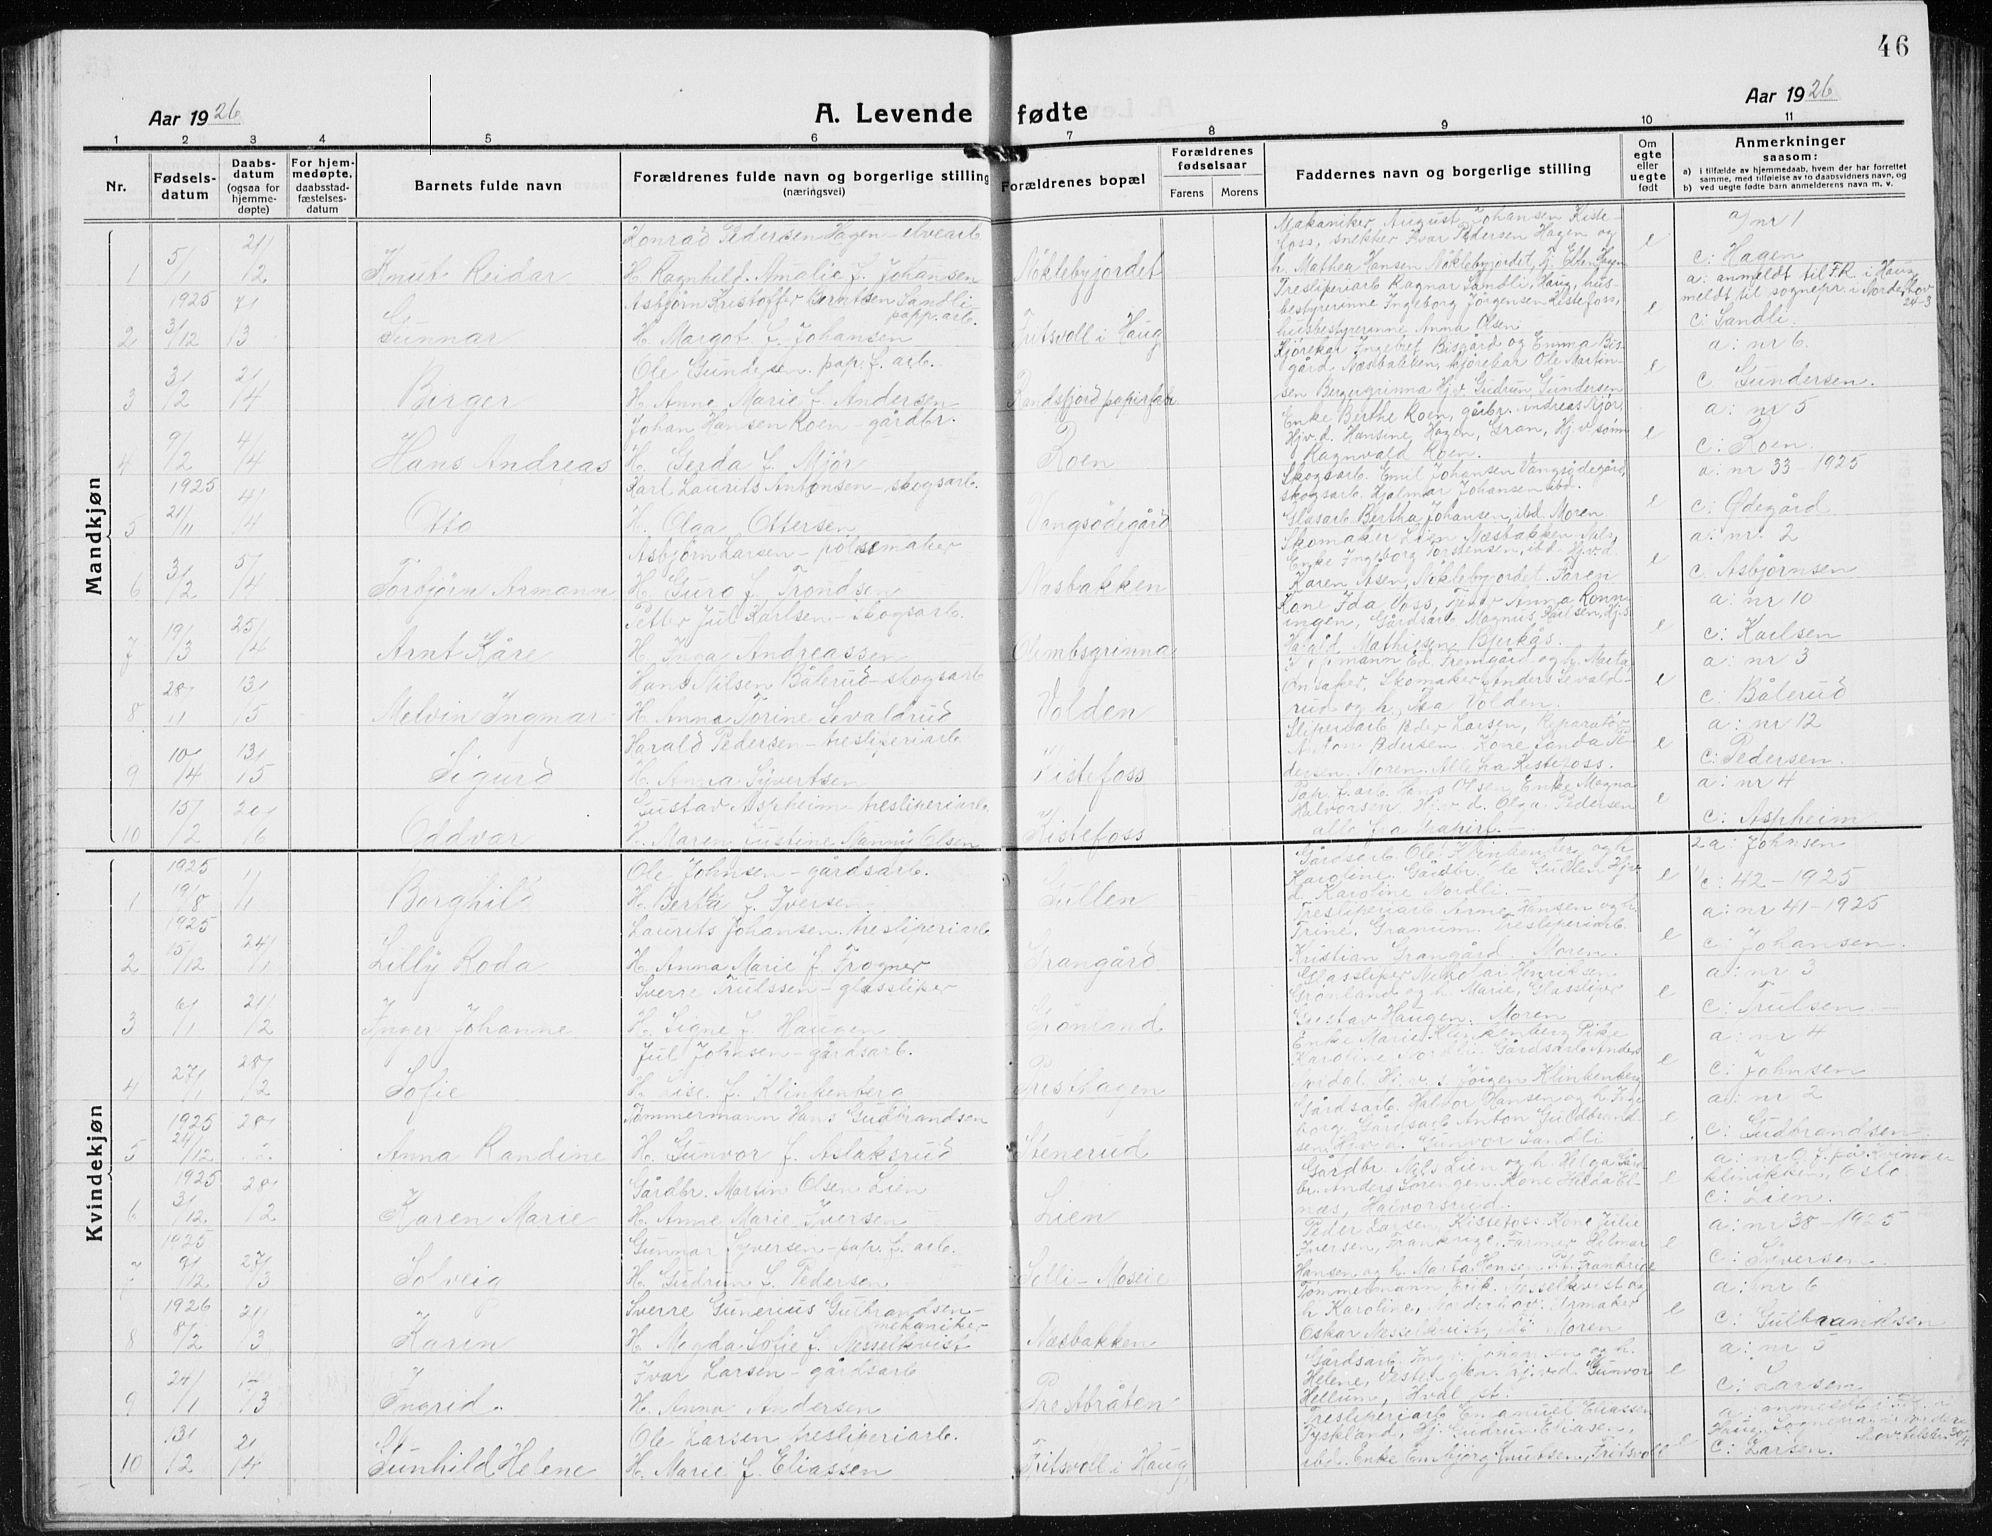 46
Aar 1926
A. Levende fødte
Aar 1926
1 2 3 4 5 6 7 8 9 10 11
Nr.
Fødsels-
datum
Daabs-
datum
(ogsaa for
hjemme-
døpte)
For hjem-
medøpte,
daabsstad-
fæstelses-
datum
Barnets fulde navn
Forældrenes fulde navn og borgerlige stilling
(næringsvei)
Forældrenes bopæl
Forældrenes
fødselsaar
Farens Morens
Faddernes navn og borgerlige stilling
Om
egte
eller
uegte
født
Anmerkninger
saasom:
a) i tilfælde av hjemmedaab, hvem der har forrettet
samme, med tilføielse av to daabsvidners navn, og
b) ved uegte fødte barn anmelderens navn m. v.
Mandkjøn
Konrad Pedersen Hagen - elvearb
1 5/1 21/2 Knut Reidar H. Ragnhild Amalie f. Johansen Nöklebyjordet
Makaniker August Johansen Kiste-
foss, snekker Ivar Pedersen Hagen og
h. Mathea Hansen Nöklebyjordet,
e
a/ nr 1
c: Hagen
1925 Asbjörn Kristoffer Berntsen Sandli
papp.arb.
2 3/12 7/13 Gunnar H. Margot f. Johansen Fritsvoll i Haug
Tresliperiarb Ragnar Sandli, Haug, hus-
bestyrerinne Ingeborg Jörgensen Kistefoss,
husbestyrerinne Anna Olsen
e
a: anmeldt til F.R. i Haug
meldt til sognepr. i Norderhov
24-3
c: Sandli.
Ole Gundersen. pap. f. arb.
3 3/2 21/4 Birger H. Anna Marie f. Andersen Randsfjord papirfabr
Kjörekar Ingebret Bisgård og Emma Bis-
gård Næsbakken, kjörekar Ole Martin-
sen Bergergrinna Hjv. Gudrun Gundersen
e
a: nr 6.
c. Gundersen.
Johan Hansen Roen - gårdbr.
4 9/2 4/4 Hans Andreas H. Gerda f. Mjör Roen
Enke Berthe Roen, gårbr. Andreas Mjör,
Hjv.d. Hansine Hagen, Gran, Hj.v sönn
Ragnvald Roen.
e
a: nr 5
c: Roen.
1925 Karl Laurits Antonsen - skogsarb.
5 21/11 4/4 Otto H. Olga Ottersen Vangsödegård
Skogsarb. Emil Johansen Vangsödegård,
skogsarb. Hjalmar Johansen ibd.
Glasarb Bertha Johansen, ibd. Moren
e
a: nr 33 - 1925
c: Ödegård
Asbjörn Larsen - pölsemaker
6 3/2 5/4 Torbjörn Armann H. Guro f. Trondsen Næsbakken
Skomaker Lien Næsbakken
Enke Ingeborg Torstensen, ibd. Hjv.d.
Karen Åsen, Nöklebyjordet. Faren
e
a: nr. 2
c. Asbjörnsen
Petter Jul Karlsen - Skogsarb.
7 19/3 25/4 Arnt Kåre H. Inga Andreassen Olumbsgrinna
Kone Ida Voss, Anna Rönn-
ingen, Gårdsarb Magnus Karlsen, Hj.s
Harald Mathiesen, Bjerkås.
e
a: nr 10
c: Karlsen
Hans Nilsen Bålerud - skogsarb
8 28/11 13/5 Melvin Ingmar H. Anna Torine Sevaldrud Volden
Ed. Framgård og h. Marta
Onsaker, Skomaker Anders Sevald-
rud og h. Åsa Volden.
e
a: nr 3
c: Bålerud
Harald Pedersen - tresliperiarb
9 10/4 13/5 Sigurd H. Anna Syvertsen Kistefoss
Sliperiarb Peder Larsen, Reparatör
Anton Pedersen. Kone Landa Pe-
dersen. Moren. Alle fra Kistefoss.
e
a: nr 12
c: Pedersen.
Gustav Aspheim - tresliperiarb.
10 15/2 20/6 Oddvar H. Maren Justine Nanny Olsen Kistefoss
Pap. f. arb. Hans Olsen, Enke Magna
Halvorsen Hjv.d. Olga Pedersen
alle fra
e
a: nr 4
c: Aspheim
Kvindekjøn
1925 Ole Johnsen - gårdsarb.
1 19/8 1/1 Borghild H. Berta f. Iversen Gullen
Gårdsarb. Ole Klinkenberg og h
Karoline. Gårdbr. Ole Gullen Hjv
d. Karoline Nordli. -
e
2a: Johnsen
c: 42 - 1925
1925 Laurits Johansen. tresliperiarb
2 15/12 24/1 Lilly Roda H. Anna Marie f. Frogner Grangård
Tresliperiarb. Arne Hansen og h.
Trine. Granum. Tresliperiarb.
Kristian Grangård. Moren.
e
a: nr 41 - 1925
c: Johansen.
Sverre Trulssen - glassliper
3 6/1 21/2 Inger Johanne H. Signe f. Haugen Grönland
Glassliper Nikolai Henriksen
Grönland og h. Marie, Glassliper
Gustav Haugen. Moren
e
a: nr 3
c: Trulsen.
Jul Johnsen - gårdsarb.
4 27/1 28/2 Sofie H. Lise f. Klinkenberg Presthagen
Enke Marie Klinkenberg Pike
Karoline Nordli. Gårdsarb Anders
Hj. v. s Jörgen Klinkenberg,
e
a: nr 4
c: Johnsen
1925 Tömmermann Hans Gudbrandsen
5 24/12 28/2 Anna Randine H. Gunvor f. Aslaksrud Stenerud
Gårdsarb. Halvor Hansen og h. Inge-
borg, Gårdsarb Anton Guldbrand-
sen Gunvor Sandli
e
a: nr 2
c: Gudbrandsen
1925 Gårdbr. Martin Olsen Lien
6 3/12 28/2 Karen Marie H. Anne Marie Iversen Lien
Gårdbr. Nils Lien og h. Helga Gård
br. Anders Sörengen. Kone Hilda El-
næs, Halvorsrud.
e
klinikken, Oslo
c: Lien.
1925 Gunnar Syversen - pap. f. arb.
7 9/12 27/3 Solveig H. Gudrun f. Pedersen Selli - Moseie
Peder Larsen, Kistefoss. Kone Julie
Iversen, Frankrige, Farmer Hilmar
Hansen og h. Marta Hansen Frankrige
e
a: nr 38 - 1925
c: Syversen
1926 Sverre Gunerius Gulbrandsen -
mekaniker
8 8/2 21/3 Karin H. Magda Sofie f. Nesselkvist Næsbakken
Tömmermann, Erik Nesselkvist og
h Karoline, Norderhov. Urmaker
Oskar Nesselkvist, ibd. Moren
e
a: nr 6
c: Gulbrandsen
Ivar Larsen - gårdsarb
9 24/1 /3 Ingrid H. Anna Andersen Prestbråten
Gårdsarb. og h.
Helene, Hj.v.d. Gunvor
Hellum, Hval st.
e
a: nr 5
c: Larsen
Ole Larsen tresliperiarb.
10 13/2 21/4 Gunhild Helene H. Marie f. Eliassen Fritsvoll i Haug
Tresliperiarb Emanuel Eliassen
Tyskland, Hj. Gudrun Eliassen,
ibd. Enke Embjörg Knutsen, Fritsvoll
e
a: anmeldt i
Haug. Sognepr. i Norder-
hov
c: Larsen.